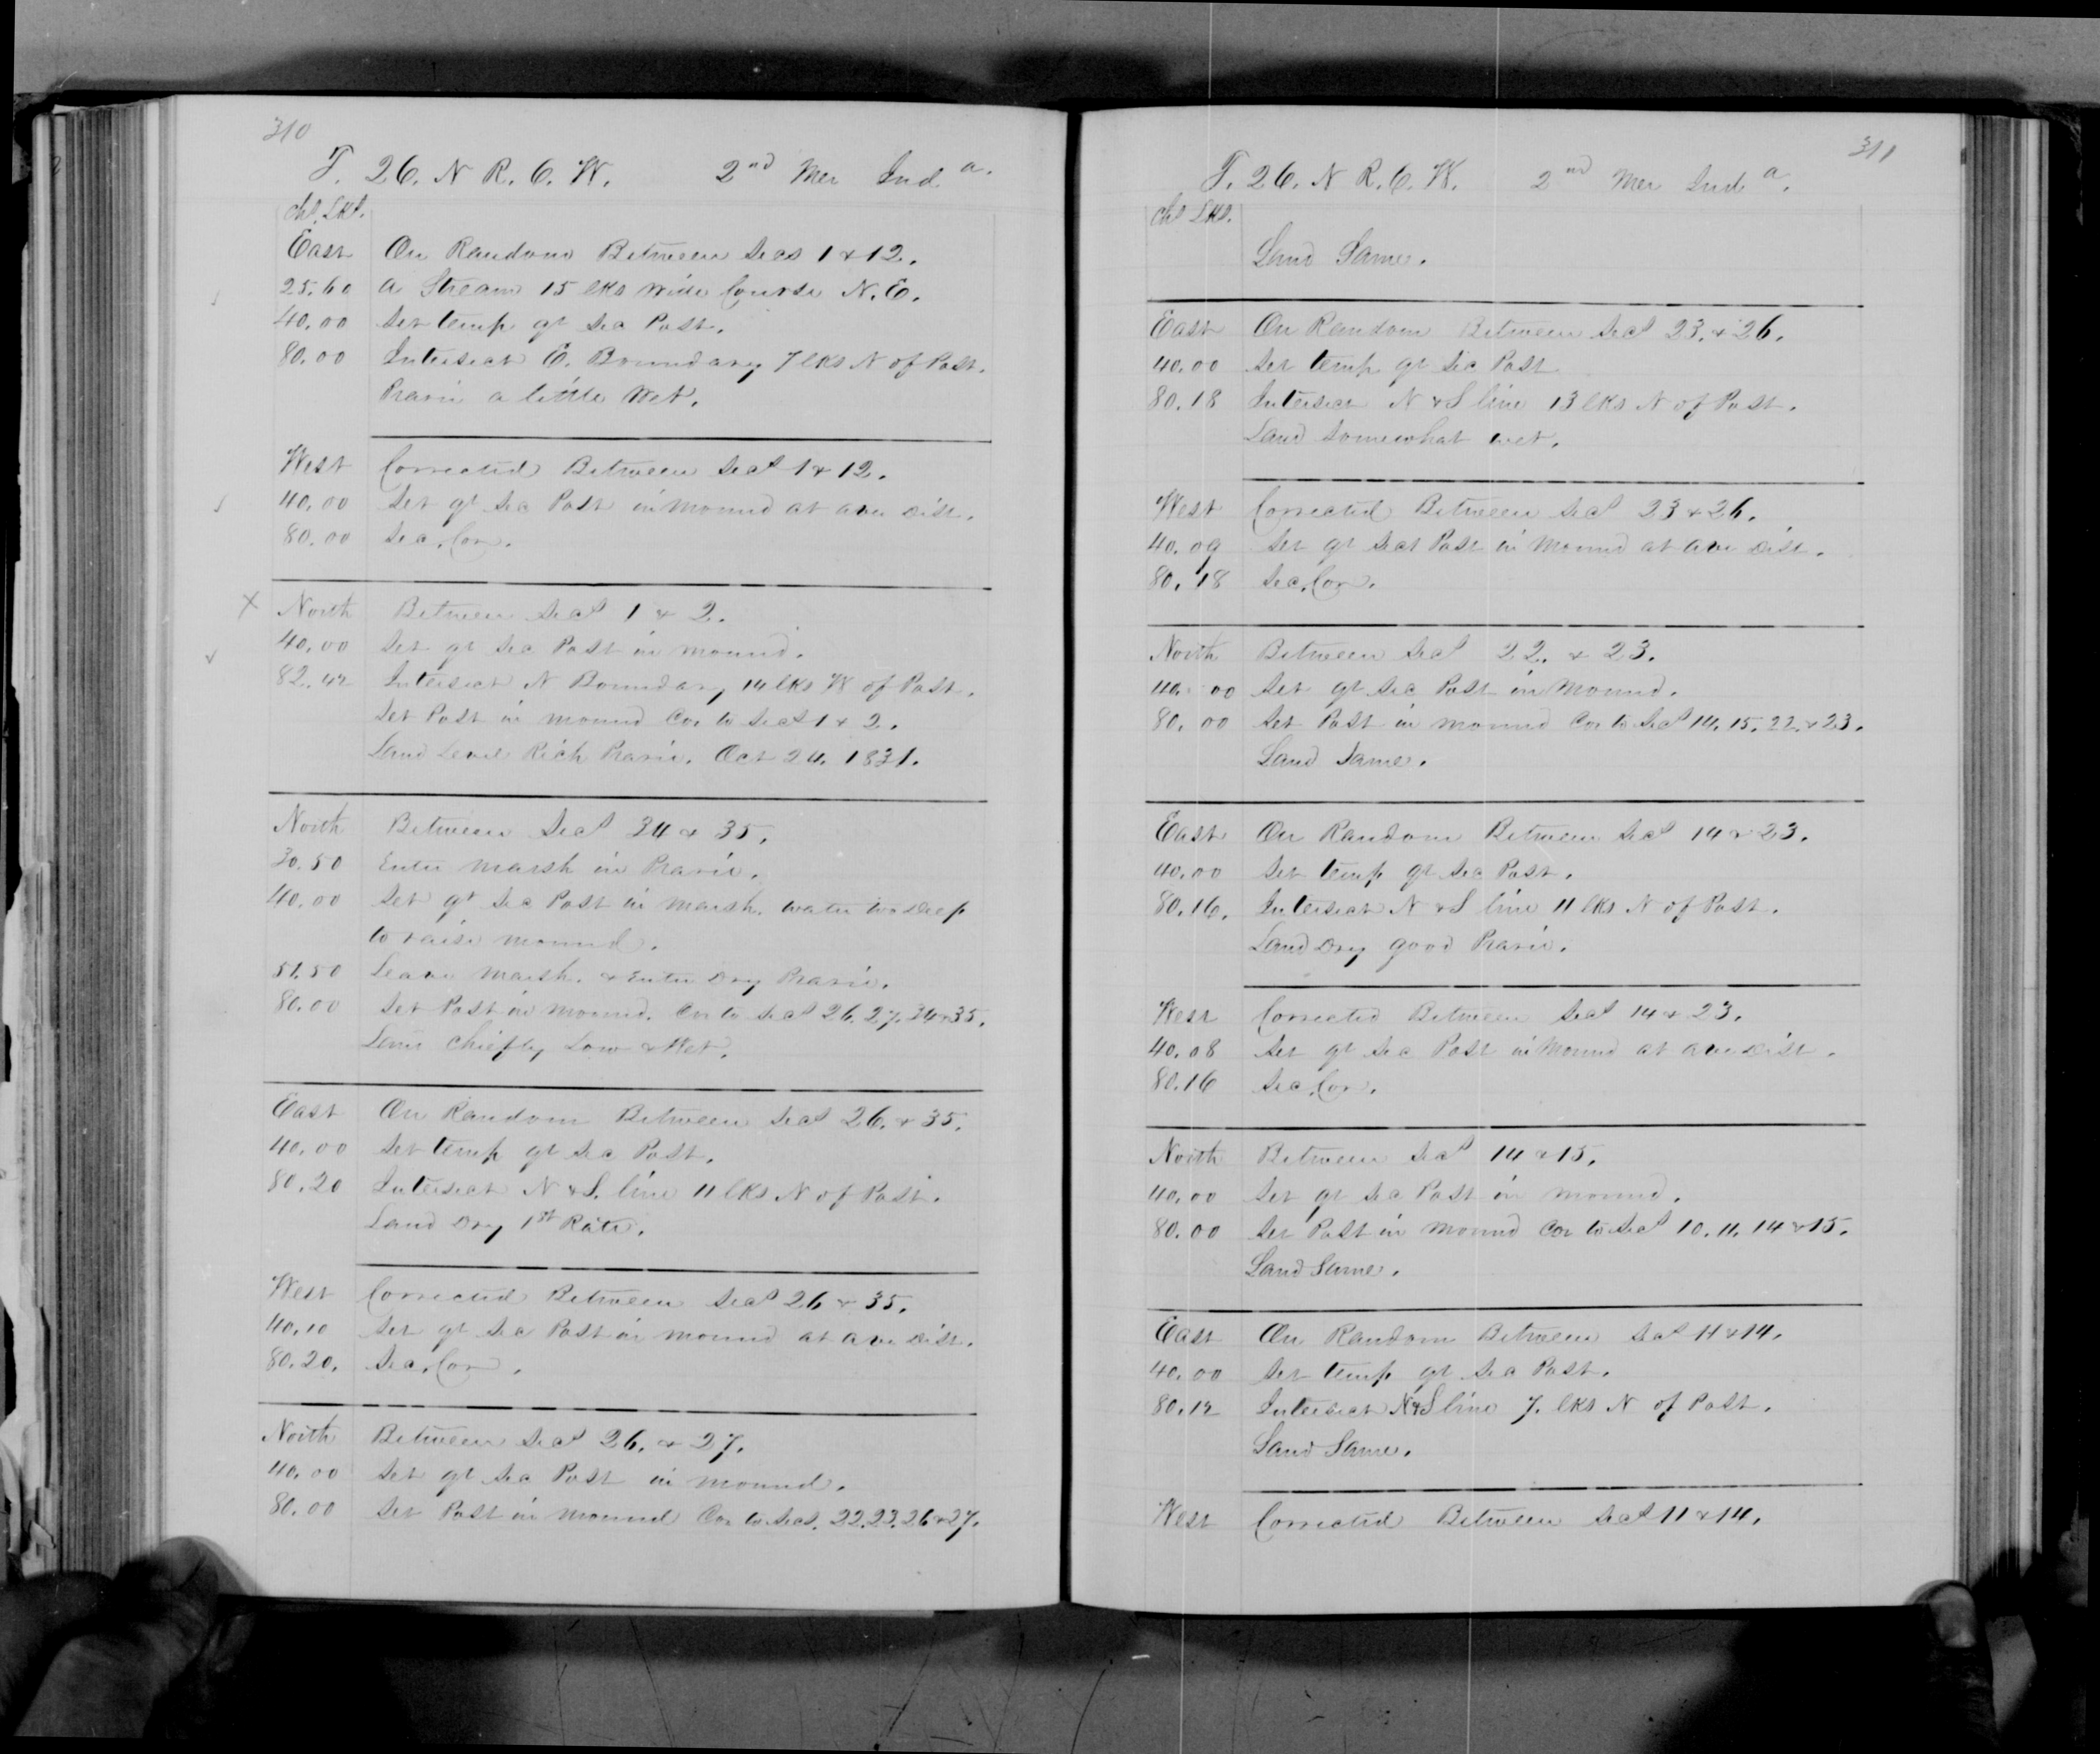 310
T. 26. N R. 6. W. 2nd Mer Ind a.
Chs. Lks.
East On Random Between Secs 1 & 12.
25.60 A Stream 15 lks wide Course N.E.
40.00 Set temp qr Sec Post.
80.00 Intersect E. Boundary 7 lks N of Post.
Prarie a little Wet.
West Corrected Between Secs 1 & 12.
40.00 Set qr Sec Post in mound at ave dist.
80.00 Sec. Cor.
X North Between Secs 1 & 2.
40.00 Set qr Sec Post in mound.
82.42 Intersect N Boundary 14 lks W of Post.
Set Post in mound Cor to Secs 1 & 2.
Land Level Rich Prarie. Oct 24. 1831.
North Between Secs 34 & 35.
30.50 Enter marsh in Prarie.
40.00 Set qr Sec Post in marsh. water too deep
to raise mound.
51.50 Leave marsh. & Enter Dry Prarie.
80.00 Set Post in mound. Cor to Secs 26. 27. 34 & 35.
Land chiefly Low & Wet.
East On Random Between Secs 26. & 35.
40.00 Set temp qr Sec Post.
80.20 Intersect N & S. line 11 lks N of Post.
Land Dry 1st Rate.
West Corrected Between Secs 26 & 35.
40.10 Set qr Sec Post in mound at ave dist.
80.20. Sec. Cor.
North Between Secs 26. & 27.
40.00 Set qr Sec Post in mound.
80.00 Set Post in mound Cor to Secs. 22. 23. 26 & 27.
311
T. 26. N R. 6. W. 2nd Mer Ind a.
Chs Lks.
Land Same.
East On Random Between Secs 23. & 26.
40.00 Set temp qr Sec Post
80.18 Intersect N & S line 13 lks N of Post.
Land Somewhat wet.
West Corrected Between Secs 23 & 26.
40.09 Set qr Sect Post in mound at ave dist.
80.18 Sec. Cor.
North Between Secs 22. & 23.
40.00 Set qr Sec Post in mound.
80.00 Set Post in mound Cor to Secs 14. 15. 22. & 23.
Land Same.
East On Random Between Secs 14 & 23.
40.00 Set temp qr Sec Post.
80.16. Intersect N & S line 11 lks N of Post.
Land Dry good Prarie.
West Corrected Between Secs 14 & 23.
40.08 Set qr Sec Post in mound at ave dist.
80.16 Sec. Cor.
North Between Secs 14 & 15.
40.00 Set qr Sec Post in mound.
80.00 Set Post in mound Cor to Secs 10. 11. 14 & 15.
Land Same.
East On Random Between Secs 11 & 14.
40.00 Set temp qr Sec Post.
80.12 Intersect N & S line 7. lks N of Post.
Land Same.
West Corrected Between Secs 11 & 14.